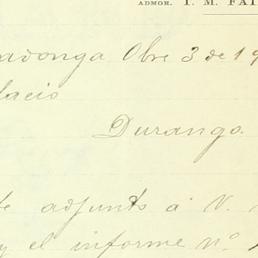 ADMOR. I. M. FAI
adonga Obre 3 de 19
lacio
Durango.
te adjunto á V.
y el informe nº